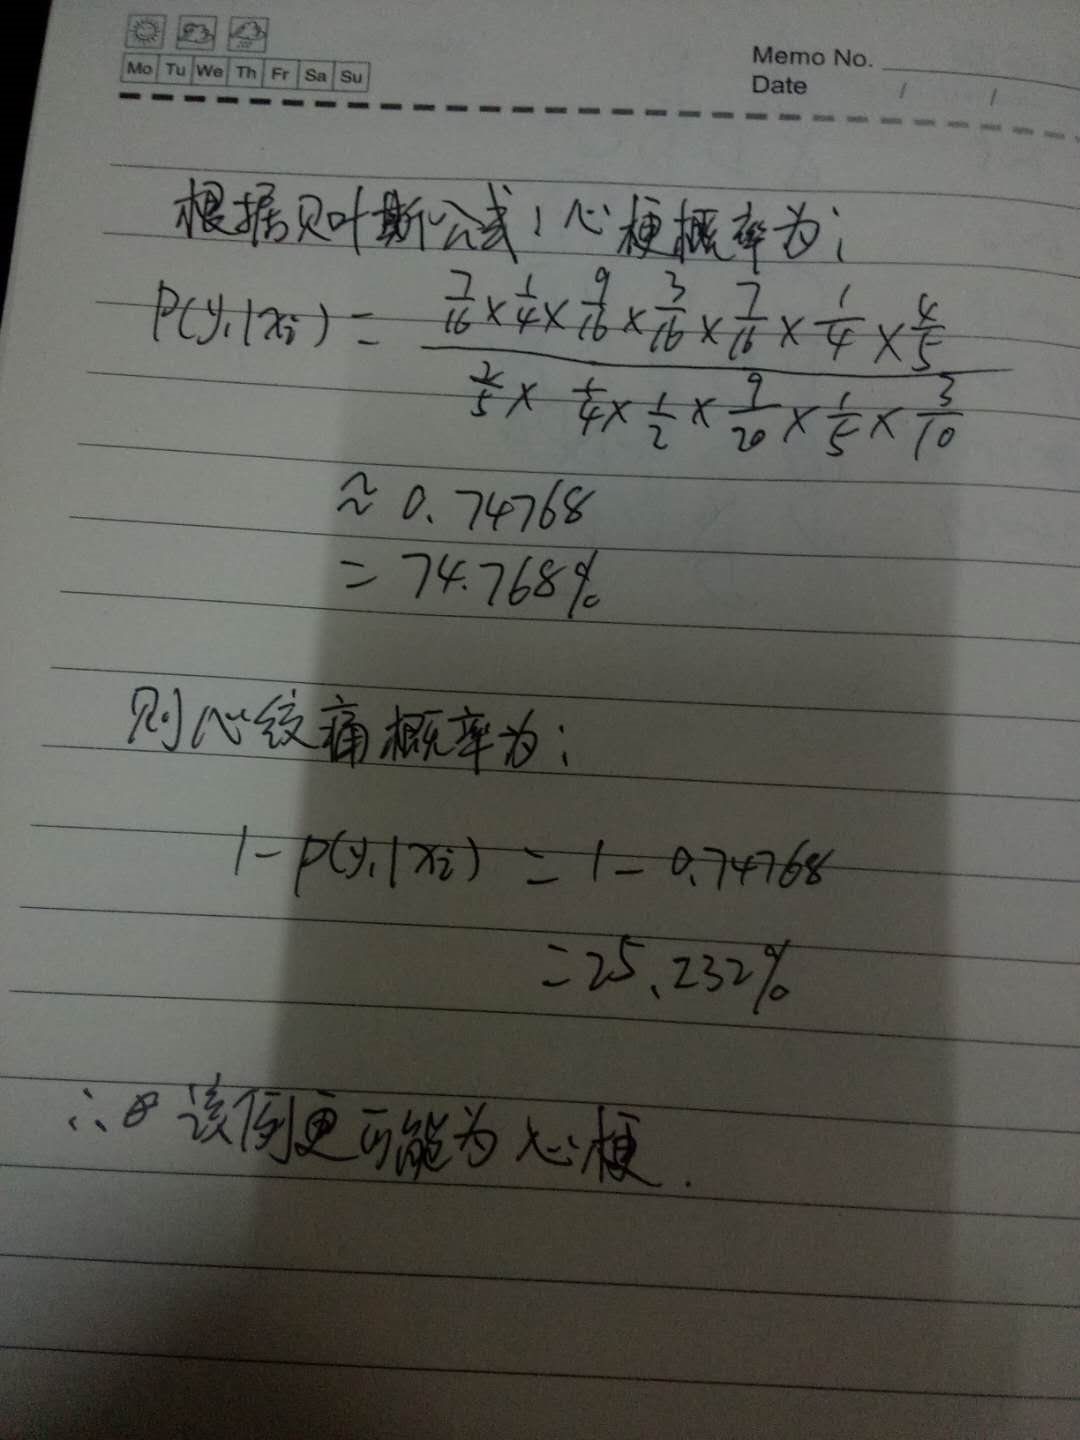 Mo Tu We Th Fr Sa Su
Memo No.
Date / /
根据贝叶斯公式,心梗概率为:
P(y₁|xᵢ) = (7/16 × 1/4 × 9/16 × 3/16 × 7/16 × 1/4 × 4/5) / (2/5 × 1/4 × 1/2 × 9/20 × 1/5 × 3/10)
≈ 0.74768
= 74.768%
则心绞痛概率为:
1 - P(y₁|xᵢ) = 1 - 0.74768
= 25.232%
∴ 该例更可能为心梗.